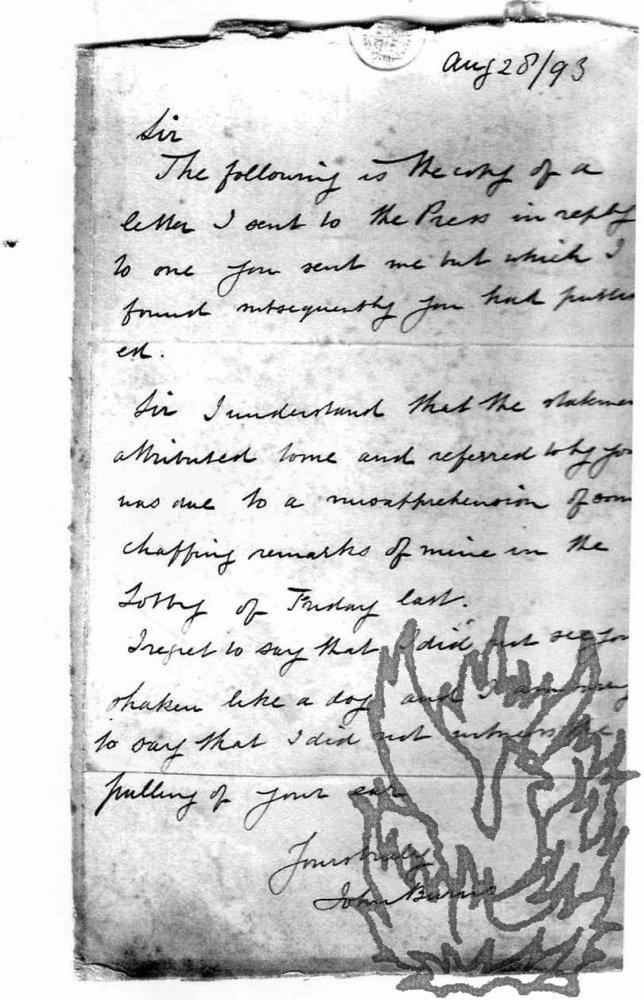 Aug 28/93
Sir
The following is the copy of a
letter I sent to the Press in reply
to one you sent me but which I
found subsequently you had publish
ed.
Sir I understand that the statemen
attributed to me and referred to by you
was due to a misapprehension of som
chaffing remarks of mine in the
Lobby of Friday last.
I regret to say that I did not see you
shaken like a dog and I am sorry
to say that I did not witness the
pulling of your ear
Yours truly
John Burns